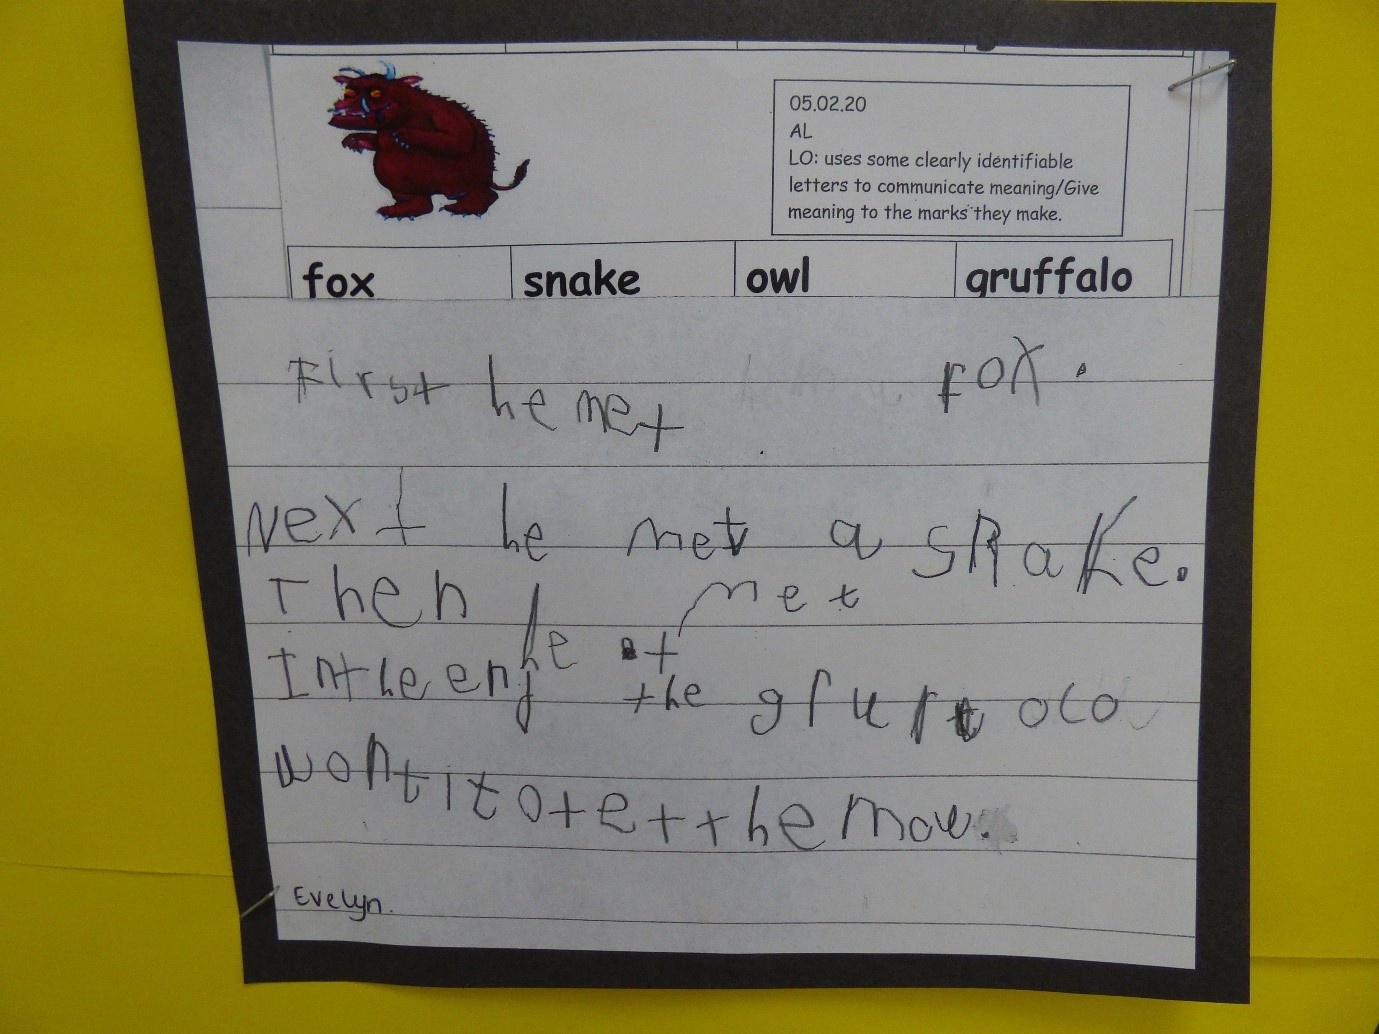 05.02.20
AL
LO: uses some clearly identifiable
letters to communicate meaning/Give
meaning to the marks they make.
fox snake owl gruffalo
First he met FOX.
Next he met a snake.
Then he met
In the end the
wonti to tet the mow.
Evelyn.